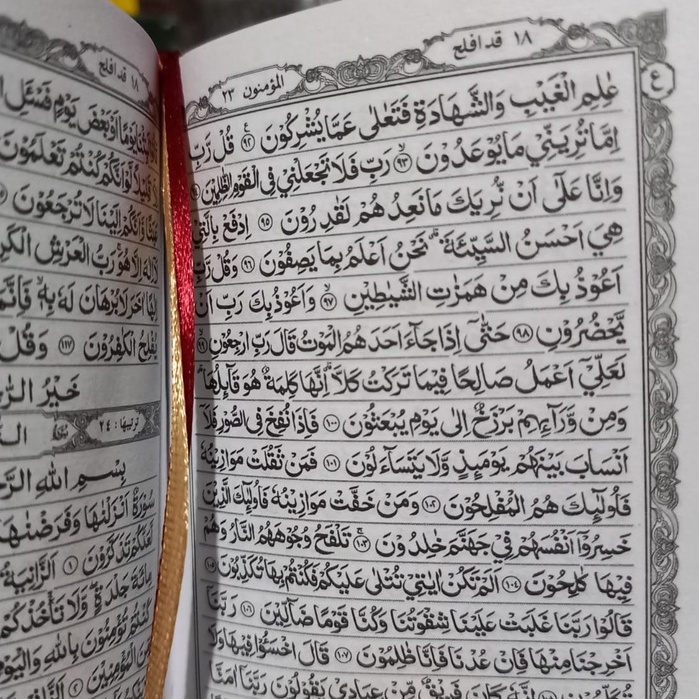 ١٨ قد افلح
المؤمنون ٢٣
ع
عٰلِمِ الْغَيْبِ وَالشَّهَادَةِ فَتَعٰلٰى عَمَّا يُشْرِكُوْنَ ٩٢ قُلْ رَّبِّ
اِمَّا تُرِيَنِّيْ مَا يُوْعَدُوْنَ ٩٣ رَبِّ فَلَا تَجْعَلْنِيْ فِى الْقَوْمِ الظّٰلِمِيْنَ
وَاِنَّا عَلٰٓى اَنْ نُّرِيَكَ مَا نَعِدُهُمْ لَقٰدِرُوْنَ ٩٥ اِدْفَعْ بِالَّتِيْ
هِيَ اَحْسَنُ السَّيِّئَةَ ۗ نَحْنُ اَعْلَمُ بِمَا يَصِفُوْنَ ٩٦ وَقُلْ رَّبِّ
اَعُوْذُ بِكَ مِنْ هَمَزٰتِ الشَّيٰطِيْنِ ٩٧ وَاَعُوْذُ بِكَ رَبِّ اَنْ
يَّحْضُرُوْنِ ٩٨ حَتّٰٓى اِذَا جَاۤءَ اَحَدَهُمُ الْمَوْتُ قَالَ رَبِّ ارْجِعُوْنِ ٩٩
لَعَلِّيْٓ اَعْمَلُ صَالِحًا فِيْمَا تَرَكْتُ كَلَّا ۗ اِنَّهَا كَلِمَةٌ هُوَ قَاۤىِٕلُهَا ۗ
وَمِنْ وَّرَاۤىِٕهِمْ بَرْزَخٌ اِلٰى يَوْمِ يُبْعَثُوْنَ ١٠٠ فَاِذَا نُفِخَ فِى الصُّوْرِ فَلَآ
اَنْسَابَ بَيْنَهُمْ يَوْمَىِٕذٍ وَّلَا يَتَسَاۤءَلُوْنَ ١٠١ فَمَنْ ثَقُلَتْ مَوَازِيْنُهٗ
فَاُولٰۤىِٕكَ هُمُ الْمُفْلِحُوْنَ ١٠٢ وَمَنْ خَفَّتْ مَوَازِيْنُهٗ فَاُولٰۤىِٕكَ الَّذِيْنَ
خَسِرُوْٓا اَنْفُسَهُمْ فِيْ جَهَنَّمَ خٰلِدُوْنَ ١٠٣ تَلْفَحُ وُجُوْهَهُمُ النَّارُ وَهُمْ
فِيْهَا كٰلِحُوْنَ ١٠٤ اَلَمْ تَكُنْ اٰيٰتِيْ تُتْلٰى عَلَيْكُمْ فَكُنْتُمْ بِهَا تُكَذِّبُوْنَ ١٠٥
قَالُوْا رَبَّنَا غَلَبَتْ عَلَيْنَا شِقْوَتُنَا وَكُنَّا قَوْمًا ضَاۤلِّيْنَ ١٠٦ رَبَّنَآ
اَخْرِجْنَا مِنْهَا فَاِنْ عُدْنَا فَاِنَّا ظٰلِمُوْنَ ١٠٧ قَالَ اخْسَـُٔوْا فِيْهَا وَلَا
اِنَّهٗ كَانَ فَرِيْقٌ مِّنْ عِبَادِيْ يَقُوْلُوْنَ رَبَّنَآ اٰمَنَّا
١٨ قد افلح
يَوْمًا اَوْ بَعْضَ يَوْمٍ فَسْـَٔلِ
قَلِيْلًا لَّوْ اَنَّكُمْ كُنْتُمْ تَعْلَمُوْنَ
وَّاَنَّكُمْ اِلَيْنَا لَا تُرْجَعُوْنَ
اِلٰهَ اِلَّا هُوَ رَبُّ الْعَرْشِ
اِلٰهًا اٰخَرَ لَا بُرْهَانَ لَهٗ بِهٖ فَاِنَّمَا
يُفْلِحُ الْكٰفِرُوْنَ ١١٧ وَقُلْ
خَيْرُ
ترتيبها : ٢٤
بِسْمِ اللّٰهِ
سُوْرَةٌ اَنْزَلْنٰهَا وَفَرَضْنٰهَا
لَعَلَّكُمْ تَذَكَّرُوْنَ ١ اَلزَّانِيَةُ
مِائَةَ جَلْدَةٍ ۖ وَّلَا تَأْخُذْكُمْ
كُنْتُمْ تُؤْمِنُوْنَ بِاللّٰهِ وَالْيَوْمِ
الْمُؤْمِنِيْنَ ٢